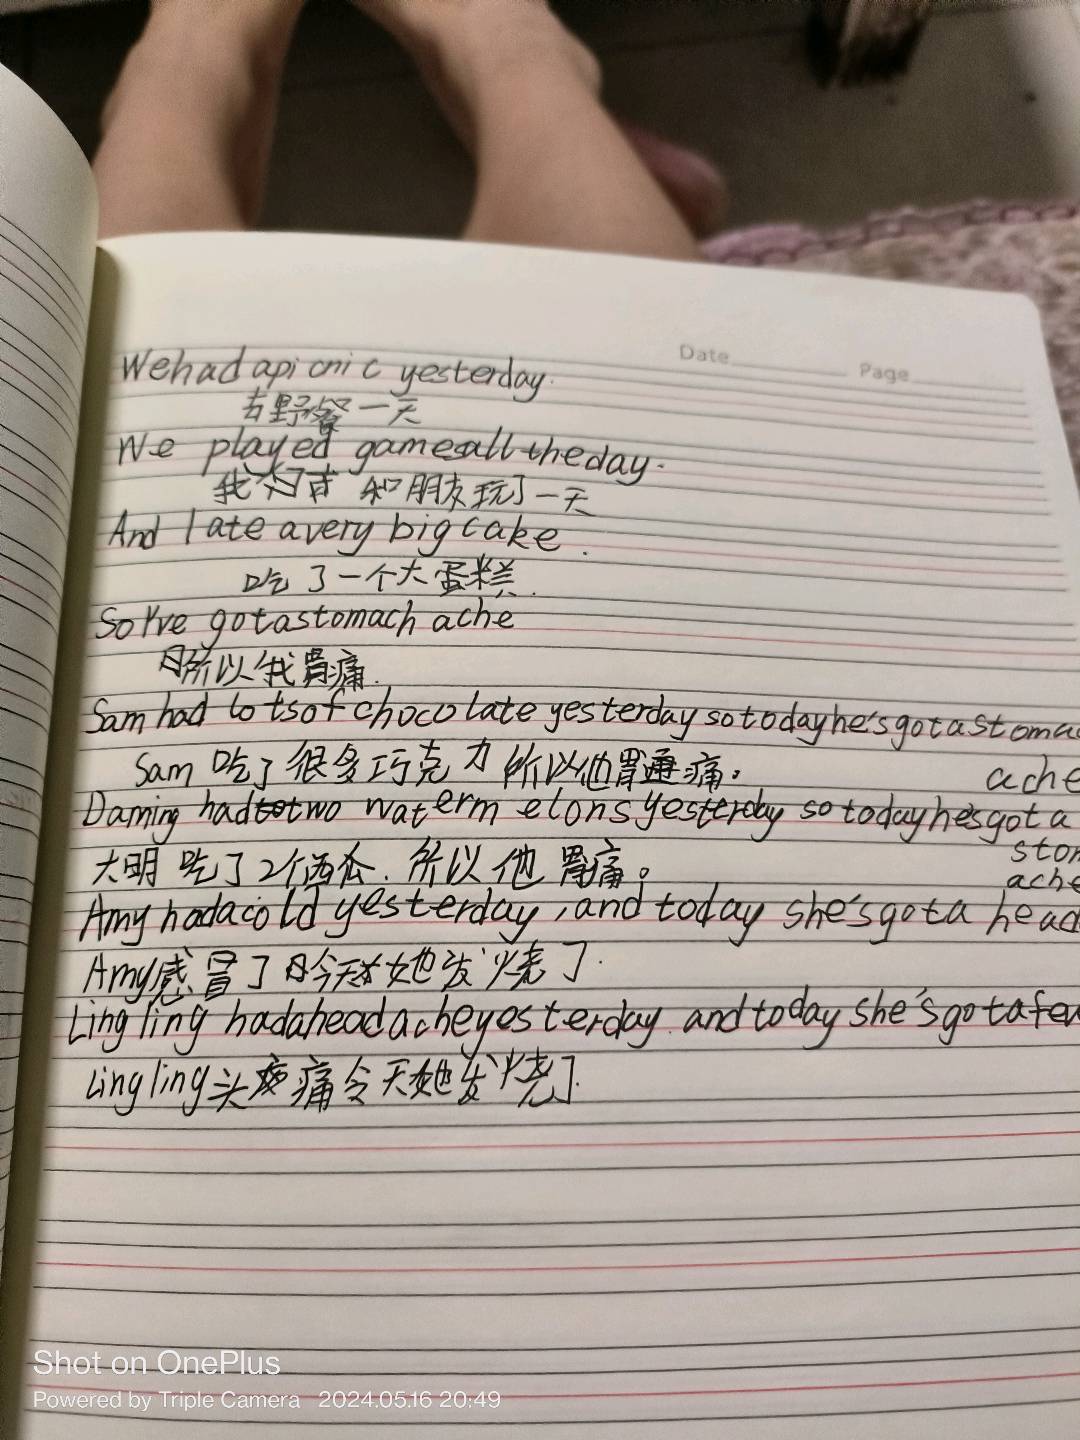 Date Page
We had a picnic yesterday.
去野餐一天
We played games all the day.
我 和朋友玩了一天
And I ate a very big cake.
吃了一个大蛋糕.
So I've got a stomach ache
所以我胃痛.
Sam had lots of chocolate yesterday so today he's got a stoma
ache
Sam 吃了很多巧克力 所以他胃痛。
Daming had two watermelons yesterday so today he's got a
stom
ache
大明 吃了2个西瓜. 所以他胃痛。
Amy had a cold yesterday, and today she's got a head
Amy感冒了 今天她发烧了.
Lingling had a headache yesterday. and today she's got a fev
Lingling头疼痛今天她发烧了.
Shot on OnePlus
Powered by Triple Camera 2024.05.16 20:49